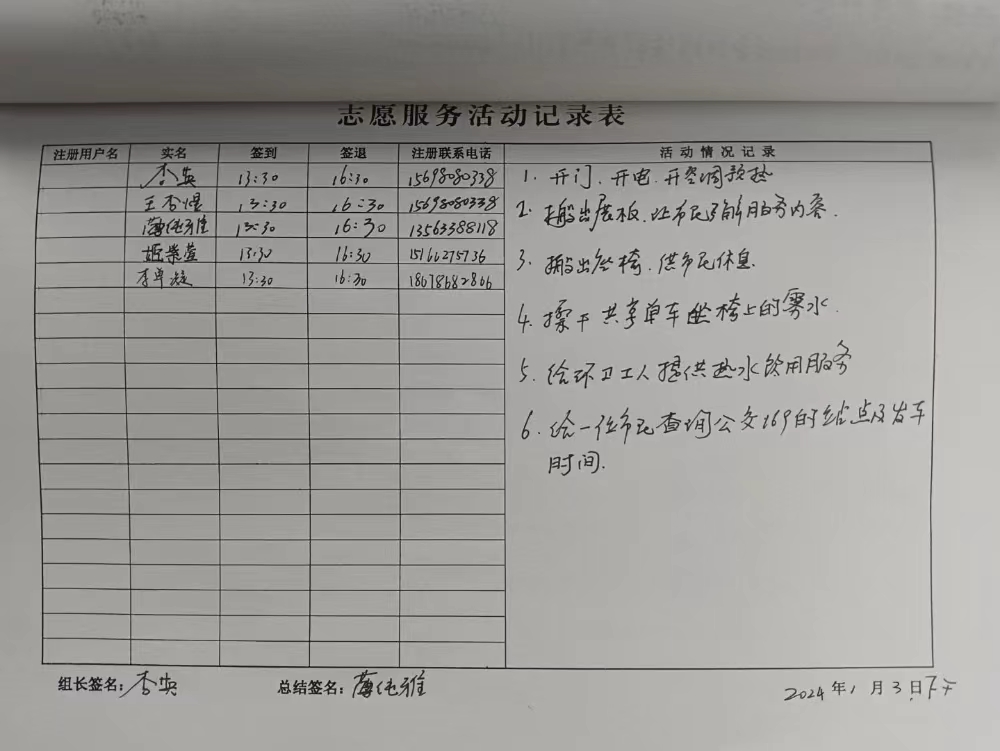 志愿服务活动记录表
注册用户名 实名 签到 签退 注册联系电话 活动情况记录
李英 13:30 16:30 15698080338
王杏煜 13:30 16:30 15698080338
薄纯雅 13:30 16:30 13563388118
姬崇萱 13:30 16:30 15166275736
李单凝 13:30 16:30 18678682866
1. 开门、开电、开空调预热
2. 搬出展板、让市民了解服务内容.
3. 搬出坐椅、供市民休息
4. 揉干共享单车坐椅上的雾水.
5. 给环卫工人提供热水饮用服务
6. 给一位市民查询公交169的站点及发车
时间.
组长签名: 李英 总结签名: 薄纯雅 2024年1月3日下午